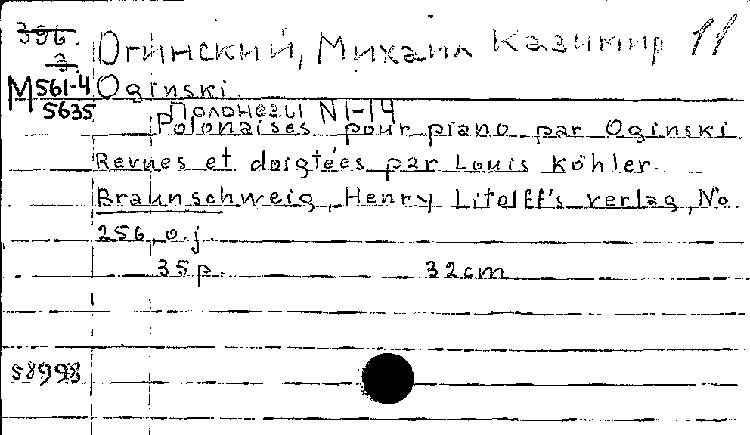 396.
3
Огинский, Михаил Казимир 11
M 561-4 Oginski.
5635 Полонезы N 1-14
Polonaises pour piano par Oginski
Revues et doigtées par Louis Köhler.
Braunschweig, Henry Litolff's verlag, No.
256, o. j.
35 p. 32 cm
58998